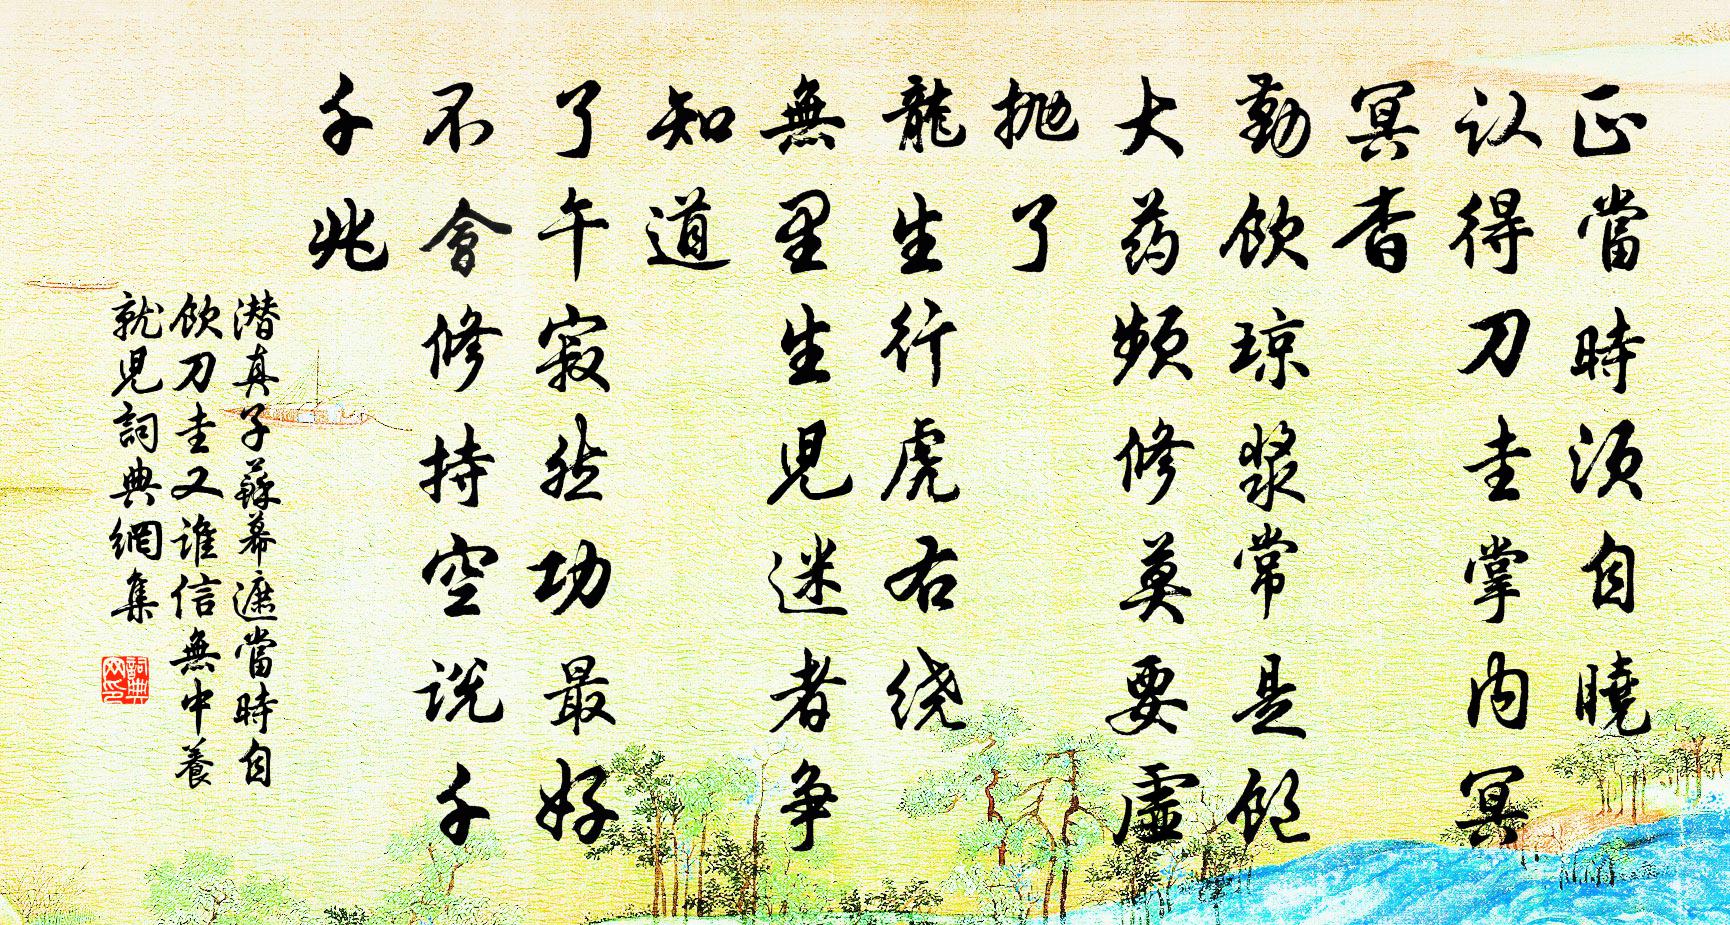 正當時須自曉
认得刀圭掌内冥
冥杳
勤飲琼漿常是飽
大药頻修莫要虛
抛了
龍生行虎右绕
無里生児迷者争
知道
了午寂然功最好
不會修持空说千
千兆
潜真子蘇幕遮當時自
飲刀圭又谁信無中養
就児詞典網集
詞典
网印